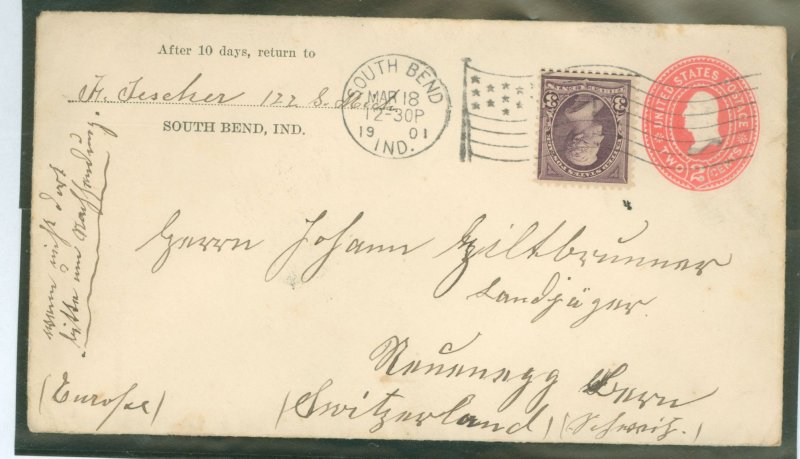 After 10 days, return to
F. Tescher 122 S. Mich.
SOUTH BEND, IND.
SOUTH BEND
MAR 18
12-30P
19 01
IND.
UNITED STATES POSTAGE
TWO 2 CENTS
3 3
Herrn Johann Hiltbrunner
Landjäger.
Neuenegg Bern
(Switzerland) (Schweiz.)
(Europe)
wenn nicht dort
bitte um Nachsendung.